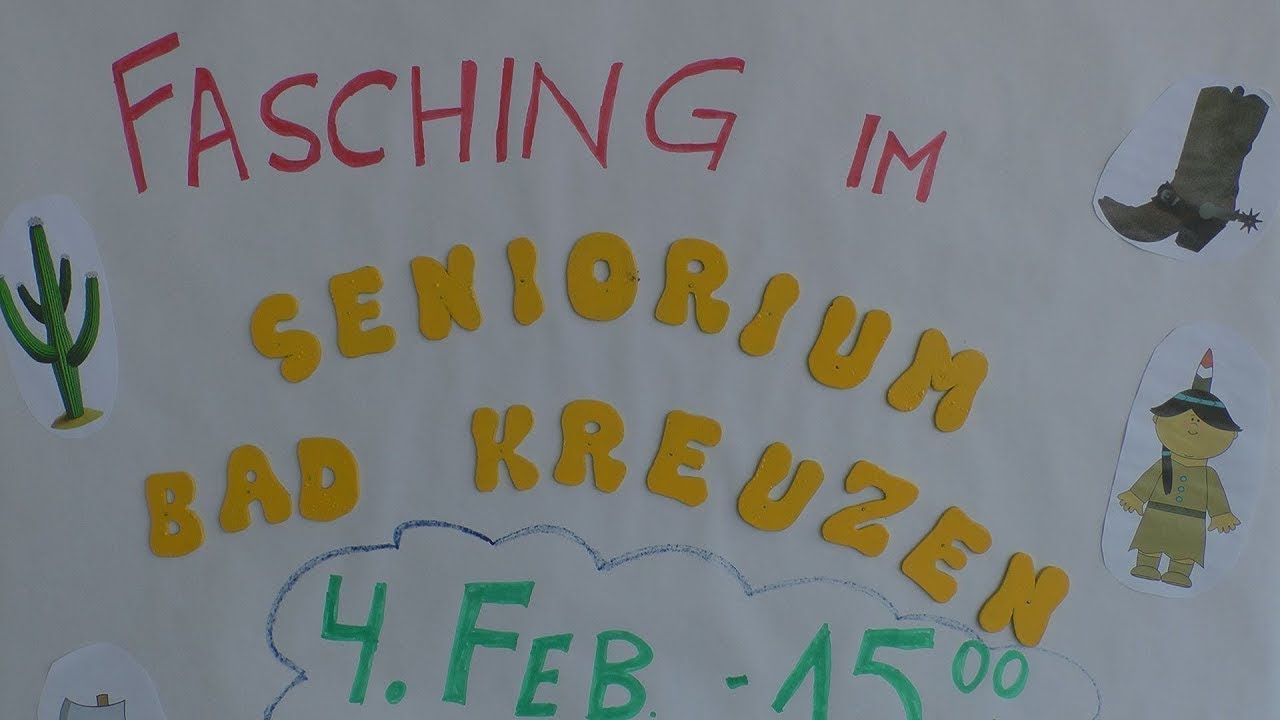 FASCHING IM
SENIORIUM
BAD KREUZEN
4. FEB. - 15⁰⁰